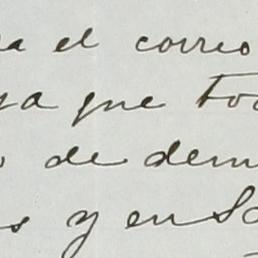 a el correo
ya que to
o de dem
s y en S